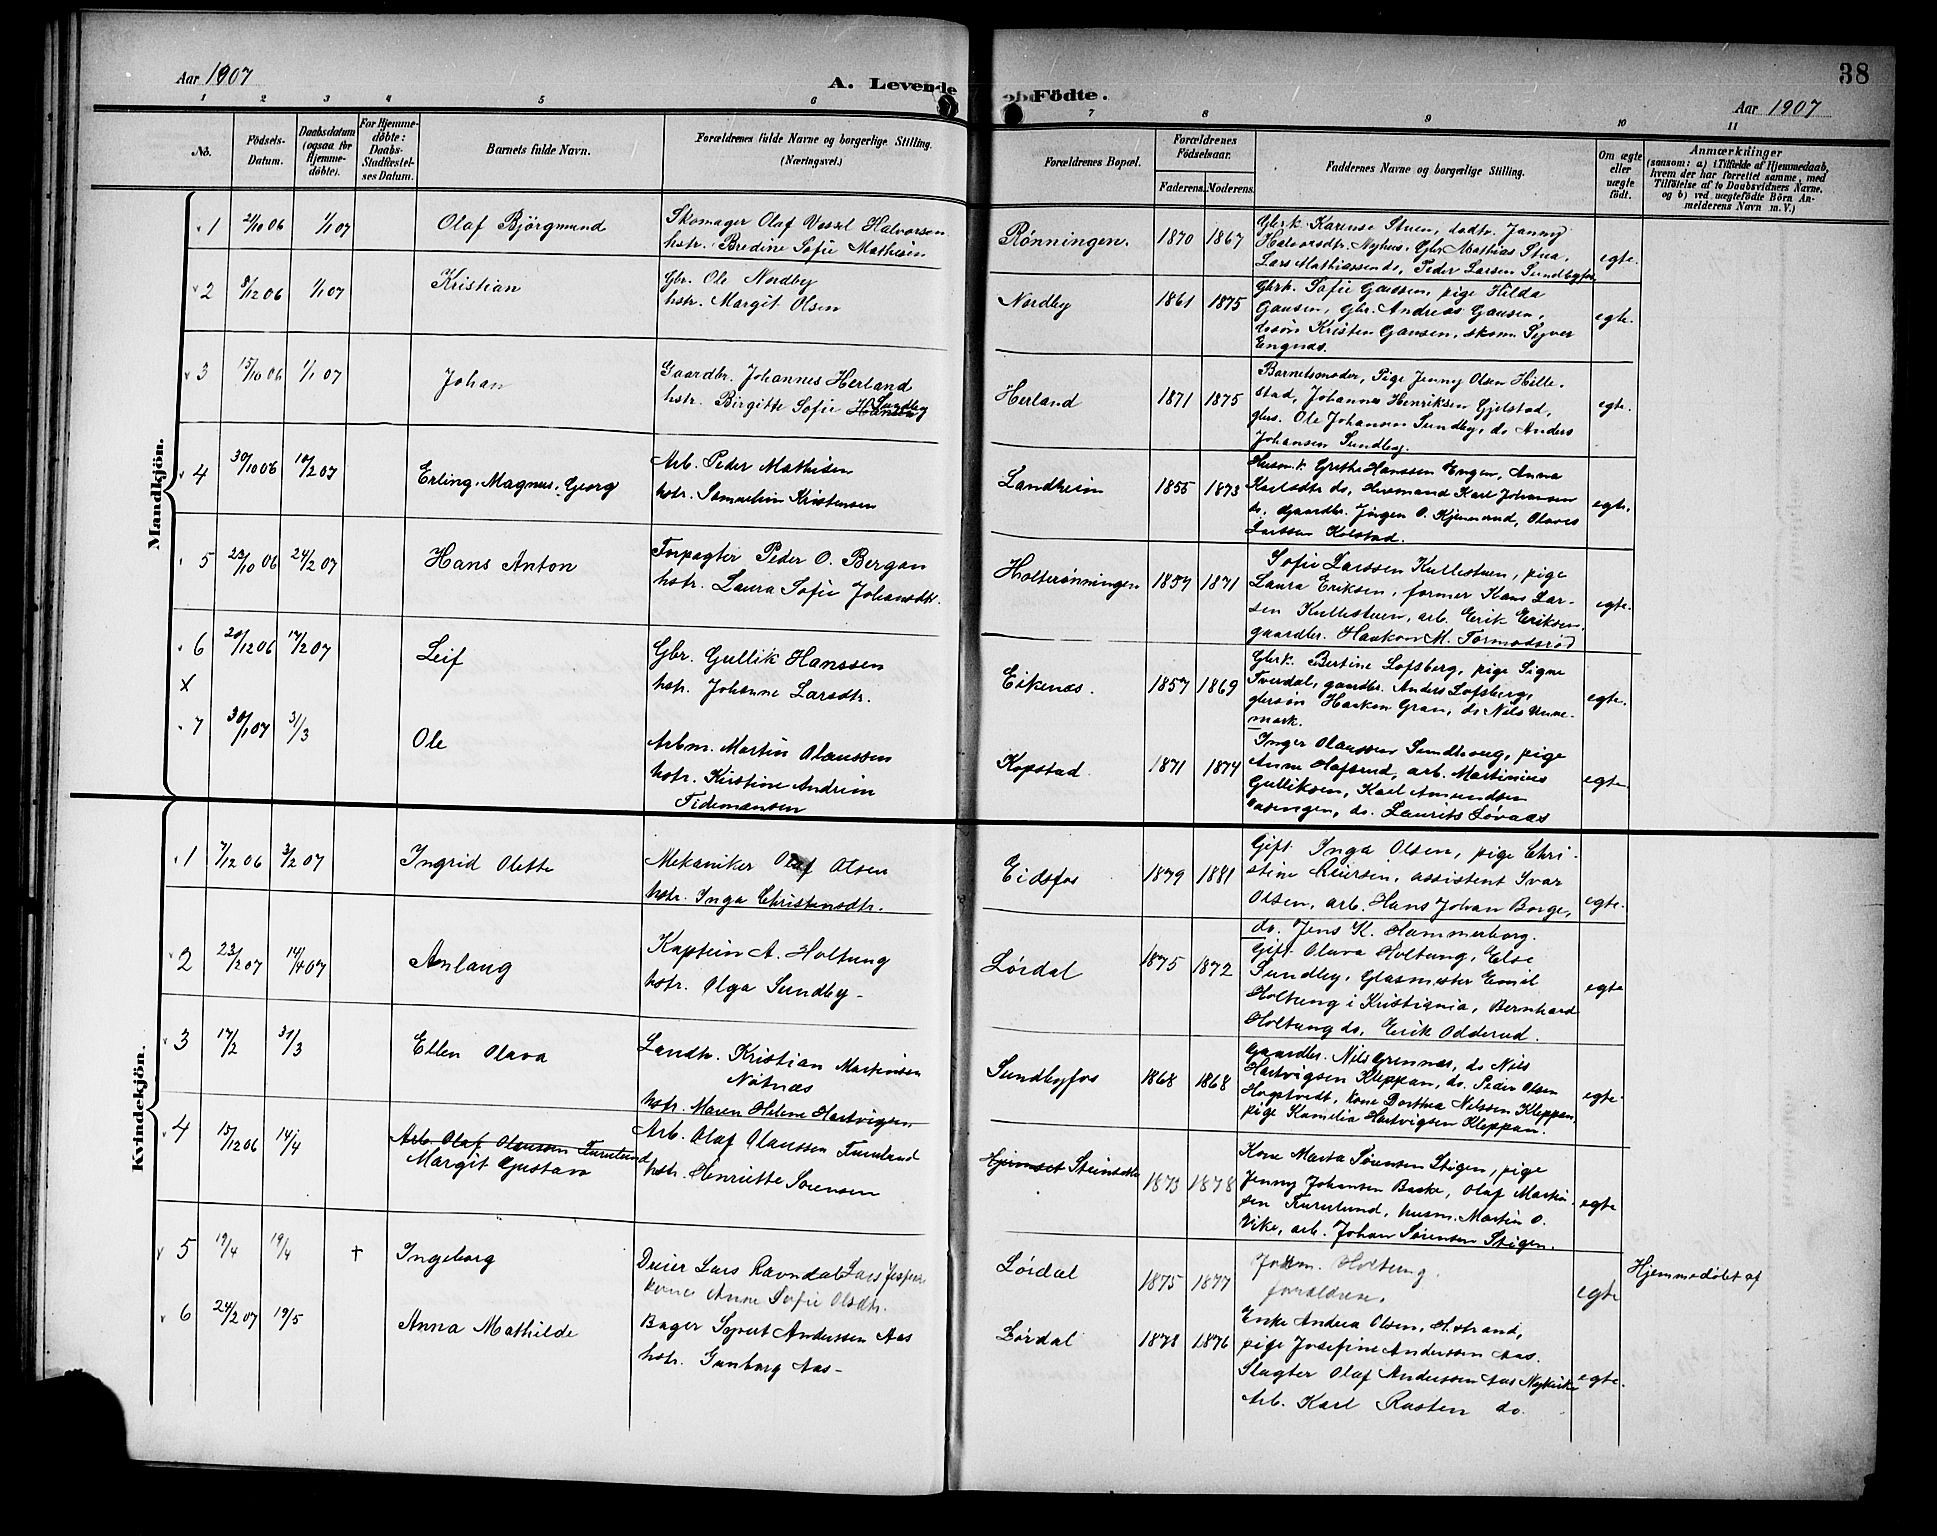 Aar 1907
A. Levende
Födte.
38
Aar 1907
1 2 3 4 5 6 7 8 9 10 11
No.
Födsels-Datum.
Daabsdatum (ogsaa for Hjemmedöbte).
For Hjemmedöbte: Daabs-Stadfæstelses Datum.
Barnets fulde Navn.
Forældrenes fulde Navne og borgerlige Stilling. (Næringsvei.)
Forældrenes Bopæl.
Forældrenes Födselsaar.
Faderens. Moderens.
Faddernes Navne og borgerlige Stilling.
Om ægte eller uægte födt.
Anmærkninger
(saasom: a) i Tilfælde af Hjemmedaab, hvem der har forrettet samme, med Tilföielse af to Daabsvidners Navne, og b) ved uægtefödte Börn Anmelderens Navn m. V.)
Mandkjön.
1 2/10 06 1/1 07 Olaf Björgmund
Skomager Olaf Vassel Halvorsen
hstr. Bredine Sofie Mathisen
Rönningen. 1870 1867
Gbrk. Karense Stuen, dadtr. Janny
Halvorsdtr. Nyhus, Gbr. Mathias Stua,
Lars Mathiassen do, Peder Larsen Sundbyfos
egte.
2 8/12 06 1/1 07 Kristian
Gbr. Ole Nordby
hstr. Margit Olsen
Nordby 1861 1875
Gbrk. Sofie Gaussen, pige Hilda
Gausen, Gbr. Andreas Gausen,
Kristen Gausen, skom. Sigver
Engnæs.
egte.
3 15/10 06 1/1 07 Johan
Gaardbr. Johannes Herland
hstr. Birgitte Sofie Hansen Sundby
Herland 1871 1875
Barnetsmoder, Pige Jenny Olsen Hille-
stad, Johannes Henriksen Gjelstad,
gbrs. Ole Johansen Sundby, do Anders
Johansen Sundby.
egte.
4 30/10 06 10/2 07 Erling Magnus Georg
Arb. Peder Mathisen
hstr. Samueline Kristensen
Landheim 1856 1873
Husm.k. Grethe Hanssen Engen, Anna
Karlsdtr do, Husmand Karl Johansen
do, Gaardbr. Jörgen O. Kjennerud, Olaves
Larssen Kolstad.
egte.
5 22/10 06 24/2 07 Hans Anton
Forpagter Peder O. Bergan
hstr. Laura Sofie Johansdtr.
Holterönningen 1854 1871
Sofie Larssen Kullestuen, pige
Laura Eriksen, former Hans Lar-
sen Kullestuen, arb. Erik Eriksen,
gaardbr. Haakon M. Tormodsröd
egte.
6 20/12 06 17/2 07 Leif
X
Gbr. Gullik Hanssen
hstr. Johanne Larsdtr.
Eikenæs. 1857 1869
Gbrk. Bertine Lofsberg, pige Signe
Tverdal, gaardbr. Anders Lofsberg,
gbrsön Haakon Gran, do Nils Unne-
mork.
egte.
7 30/1 07 31/3 Ole
Arbm. Martin Olaussen
hstr. Kirstine Andrine
Tidemansen
Kopstad 1871 1874
Inger Olaussen Sundhaug, pige
Anne Hafsrud, arb. Martinius
Gulliksen, Karl Amundsen
Aasengen, do. Laurits Lövaas
egte.
Kvindekjön.
1 7/12 06 3/2 07 Ingrid Olette
Mekaniker Olaf Olsen
hstr. Inga Christensdtr.
Eidsfos 1879 1881
Gift Inga Olsen, pige Chri-
stine Reiersen, assistent Ivar
Olsen, arb. Hans Johan Borge,
do. Jens K. Hammerborg.
egte.
2 23/2 07 14/4 07 Anlaug
Kaptein A. Holtung
hstr. Olga Sundby-
Lördal 1875 1872
Gift Olava Holtung, Else
Sundby, Glasmester Emil
Holtung i Kristiania, Bernhard
Holtung do, Erik Odderud.
egte
3 17/2 31/3 Ellen Olava
Landh. Kristian Martinsen
Nötnæs
hstr. Maren Helene Hartvigsen
Sundbyfos 1868 1868
Gaardbr. Nils Grennæs, do Nils
Hartvigsen Kleppan, do. Peder Olsen
Hogstvedt, kone Dorthea Nilssen Kleppan,
pige Kamelia Hartvigsen Kleppan.
egte
4 15/12 06 14/4 Arb. Olaf Olaussen Furulund
Margit Gustava
Arb. Olaf Olaussen Furulund
hstr. Henriette Sörensen
Hjemset 1873 1878
Kone Marta Sörensen Stigen, pige
Jenny Johansen Bakke, Olaf Martin-
sen Furulund, husm. Martin O.
Vike, arb. Johan Sörensen Stigen.
egte
5 19/4 19/4 † Ingeborg
Dreier Lars Ravndal
kone Anne Sofie Olsdtr.
Lördal 1875 1877
Holtung.
forældrene.
egte
Hjemmedöbt af
6 24/2 07 19/5 Anna Mathilde
Bager Syvert Anderssen Aas
hstr. Gunborg Aas-
Lördal 1878 1876
Enke Andrea Olsen, H.strand,
pige Josefine Anderssen Aas.
Slagter Olaf Anderssen Aas Nykirke
Arb. Karl Rasten do.
egte.